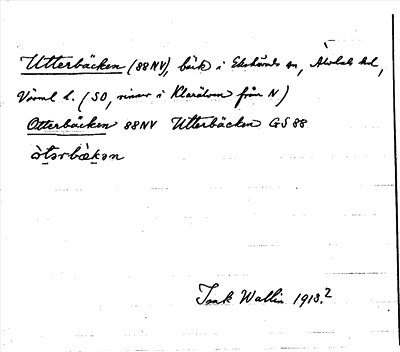 Utterbäcken (88NV), bäck i Ekshärads sn, Älvdals hd,
Värml l. (SO, rinner i Klarälven från N)
Otterbäcken 88NV Utterbäcken GS 88
òtərbækən
Isak Wallin 1918.2